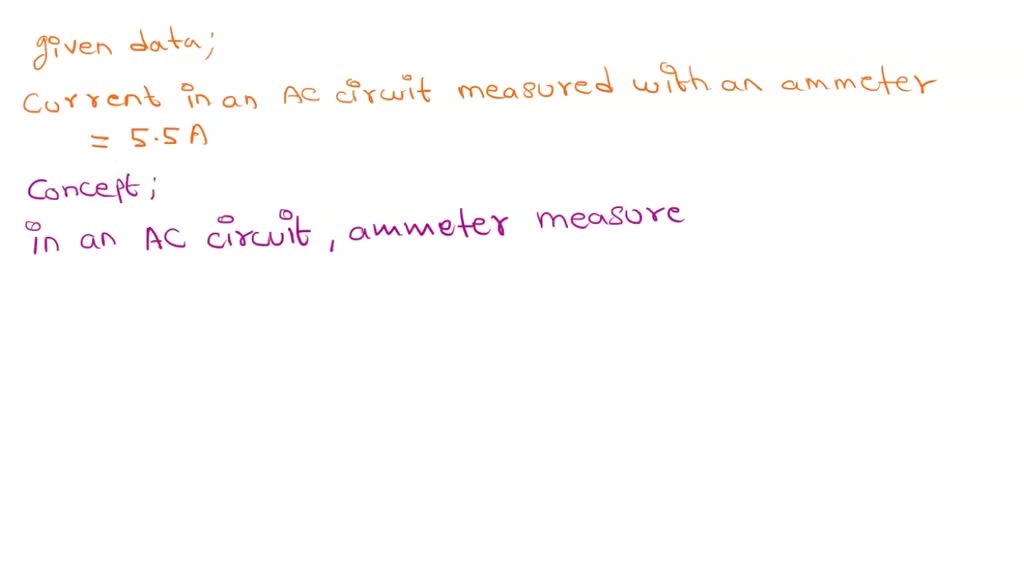 given data;
Current in an AC circuit measured with an ammeter
= 5.5A
Concept;
in an AC circuit, ammeter measure